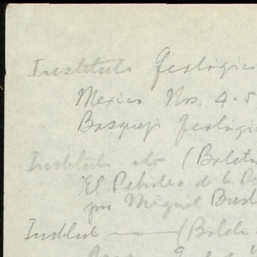 Instituto Geologic
Mexico Nos. 4-5
Bosquejo Geologi
Institut etc (Bolet
"El Petroleo de la R
por Miguel Bust
Institut —— (Bolet